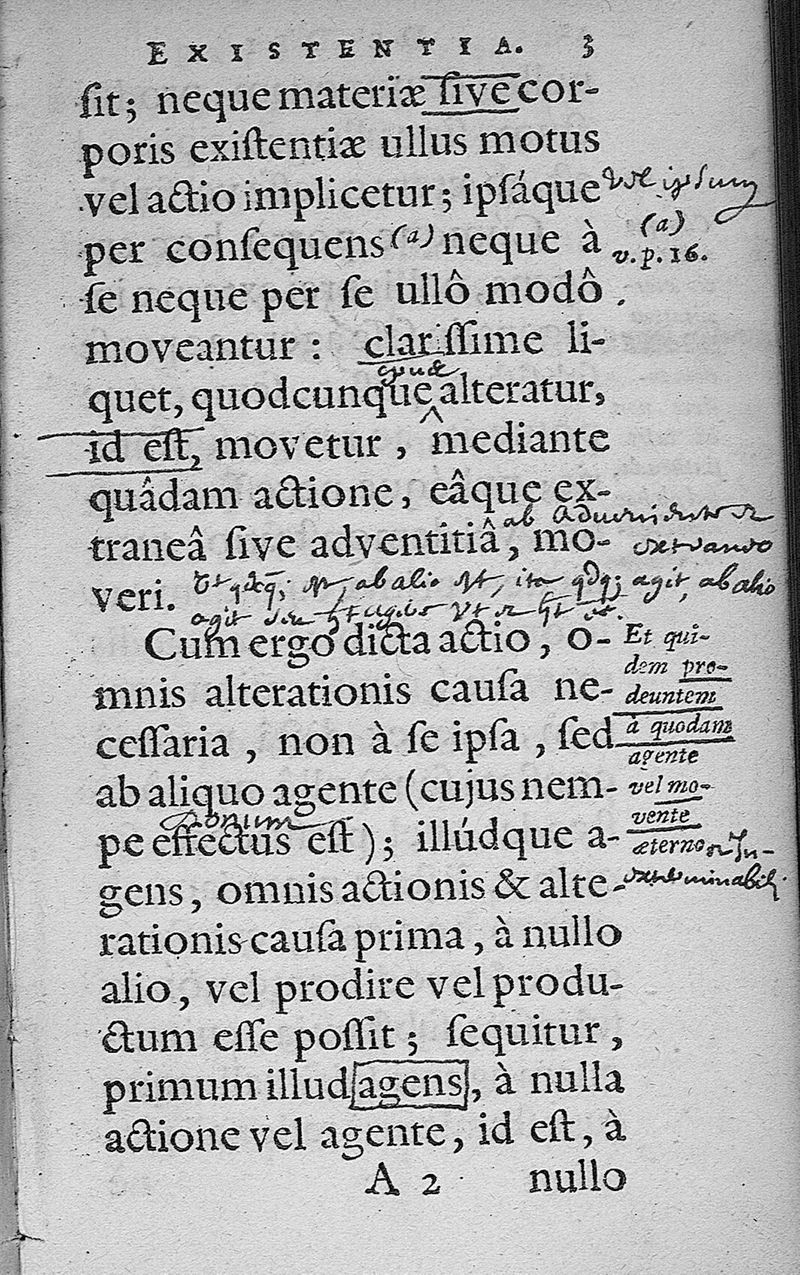 EXISTENTIA. 3
ſit; neque materiæ ſive cor-
poris exiſtentiæ ullus motus
vel actio implicetur; ipſáque vel ipsum
per conſequens (a) neque à (a) v. p. 16.
ſe neque per ſe ullô modô
moveantur: clariſſime li-
quet, quodcunque alteratur,
id eſt, movetur, mediante
quâdam actione, eâque ex-
traneâ ſive adventitiâ, mo-
veri. ab alio ita agit, ab alio
agit
Cum ergo dicta actio, o-
mnis alterationis cauſa ne-
ceſſaria, non à ſe ipſa, ſed
ab aliquo agente (cujus nem-
pe effectus eſt); illúdque a-
gens, omnis actionis & alte-
rationis cauſa prima, à nullo
alio, vel prodire vel produ-
ctum eſſe poſſit; ſequitur,
primum illud [agens], à nulla
actione vel agente, id eſt, à
A 2 nullo
Et qui-
dem pro-
deuntem
à quodam
agente
vel mo-
vente
æterno